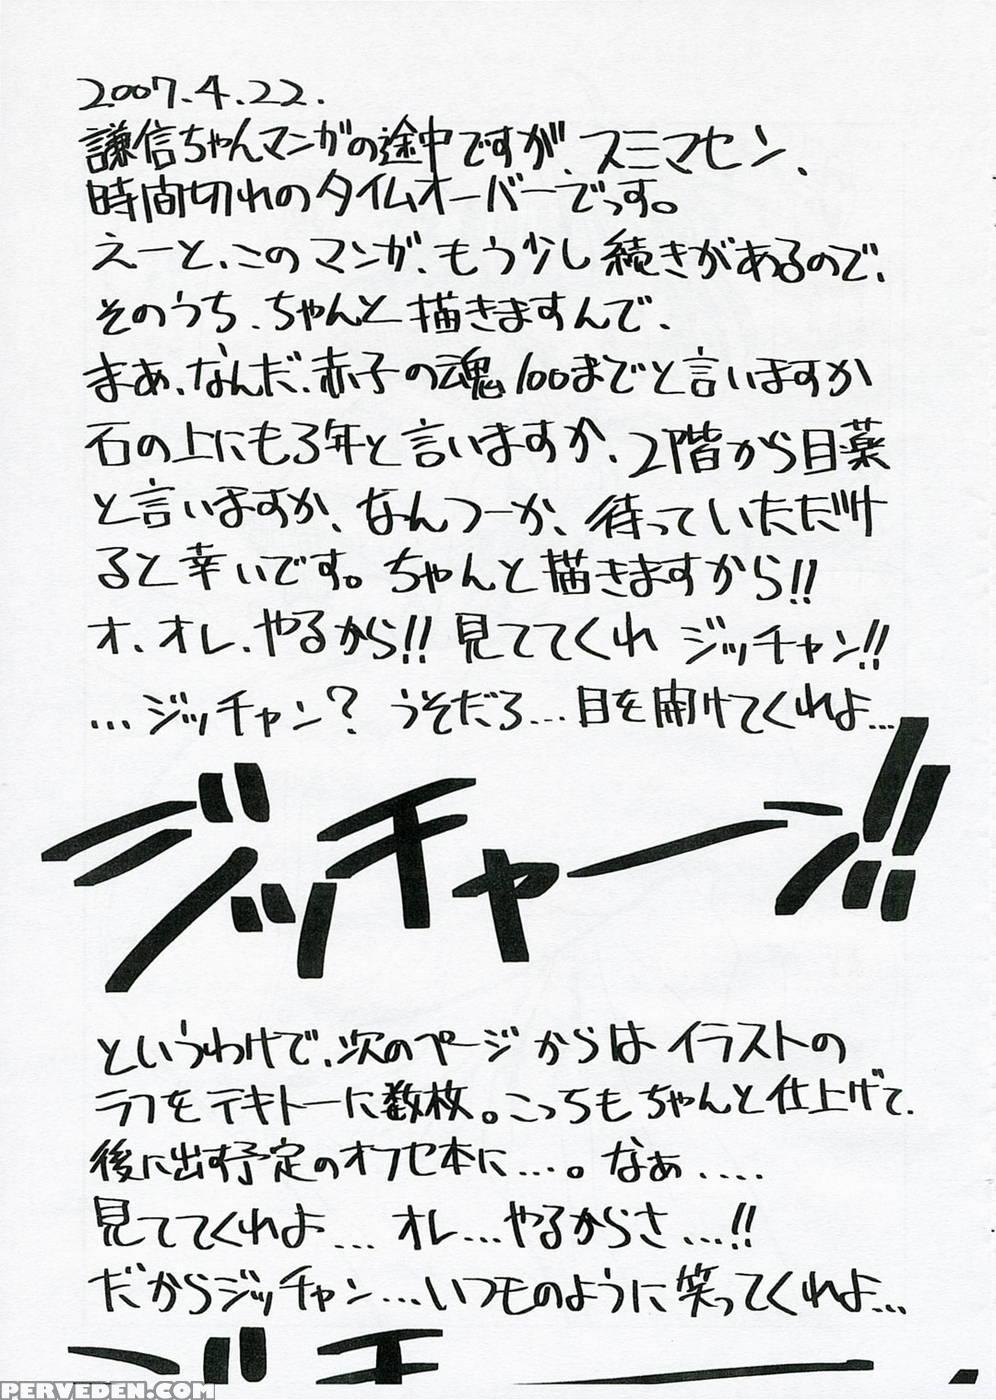 2007.4.22.
謙信ちゃんマンガの途中ですが、スミマセン、
時間切れのタイムオーバーでっす。
えーと、このマンガ、もう少し続きがあるので、
そのうち、ちゃんと描きますんで、
まぁ、なんだ、赤子の魂100までと言いますか
石の上にも3年と言いますか、2階から目薬
と言いますか、なんつーか、待っていただけ
ると幸いです。ちゃんと描きますから!!
オ、オレ、やるから!! 見ててくれ ジッチャン!!
…ジッチャン? うそだろ…目を開けてくれよ…
ジッチャーン!!
というわけで、次のページからはイラストの
ラフをテキトーに数枚。こっちもちゃんと仕上げて、
後に出す予定のオフセ本に…。なぁ....
見ててくれよ…オレ…やるからさ…!!
だからジッチャン…いつものように笑ってくれよ…
PERVEDEN.COM